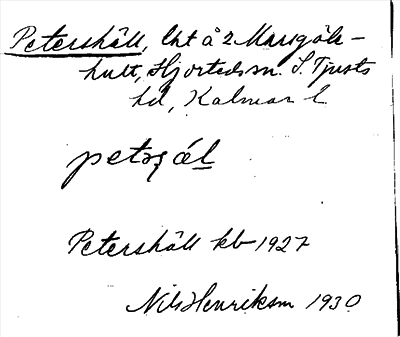 Petershäll, lht å 2 Marsgöle-
hult, Hjorteds sn. S. Tjusts
hd, Kalmar l
petəʂɛ́l
Petershäll kb 1927
Nils Henriksson 1930